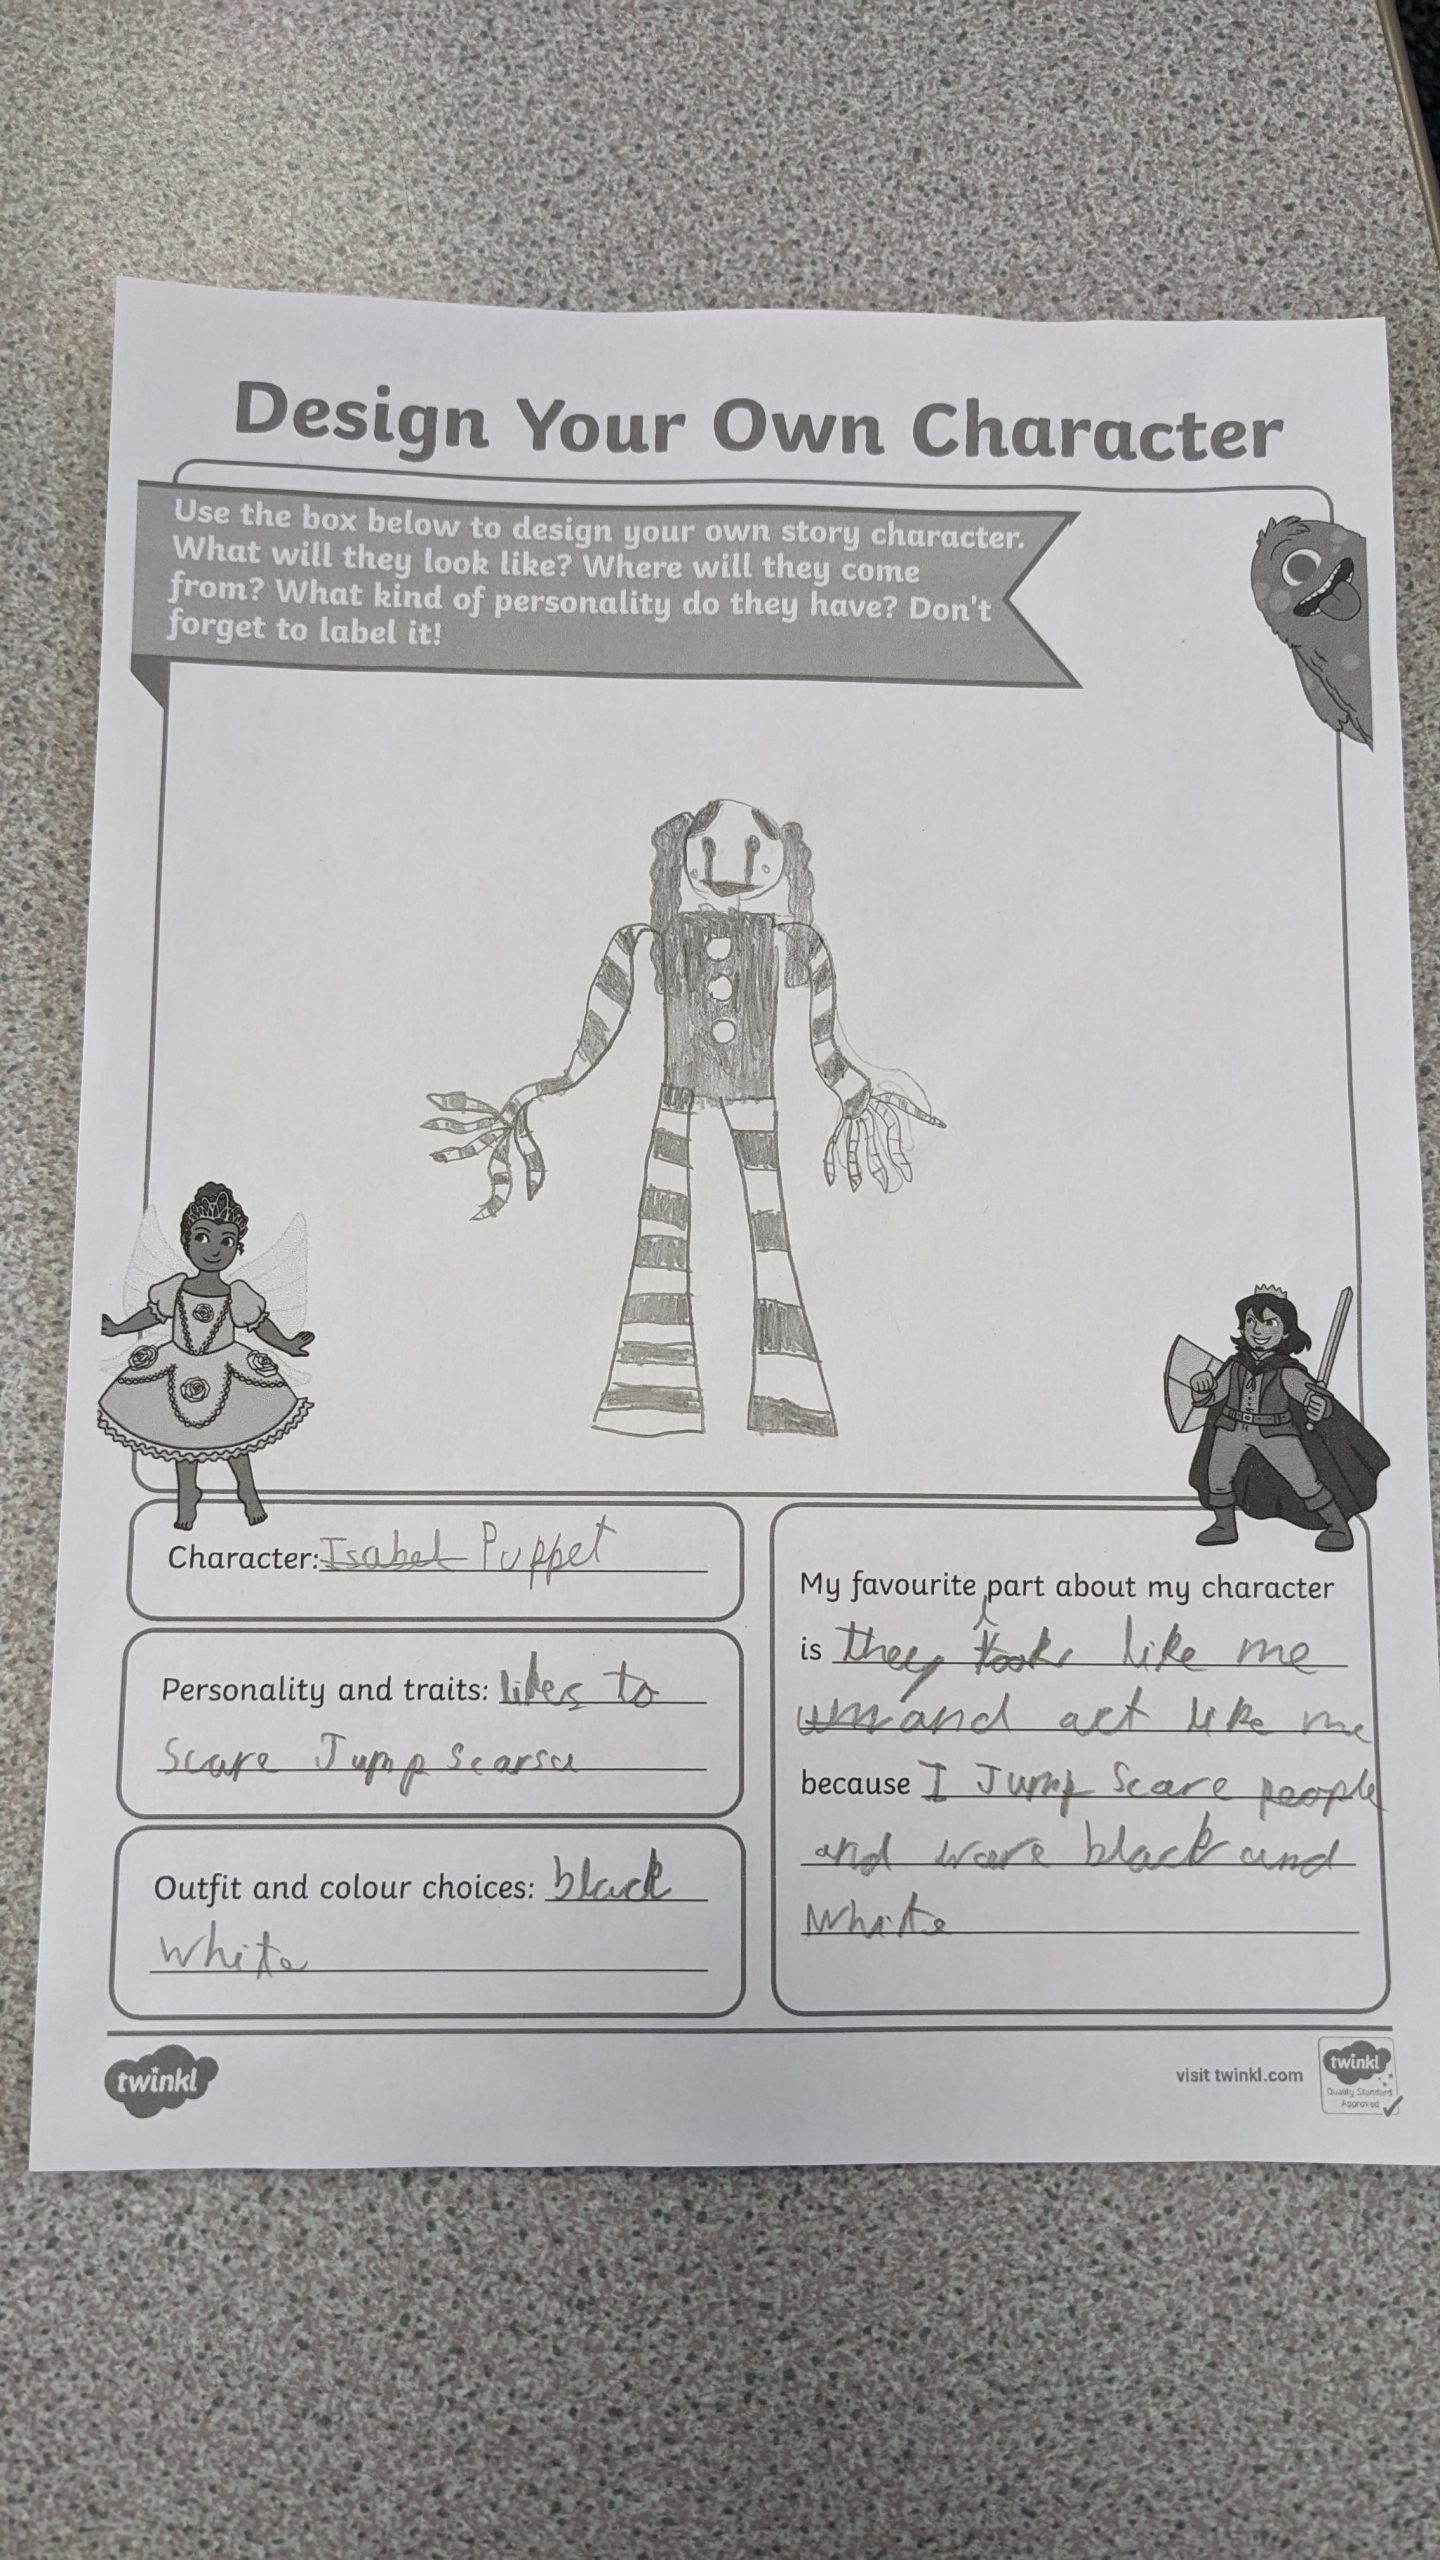 Design Your Own Character
Use the box below to design your own story character.
What will they look like? Where will they come
from? What kind of personality do they have? Don't
forget to label it!
Character: Isabel Puppet
Personality and traits: likes to
scare Jump scarsa
Outfit and colour choices: black
white
My favourite part about my character
is they looks like me
and act like me
because I Jump scare people
and ware black and
white
twinkl
visit twinkl.com
twinkl
Quality Standard
Approved